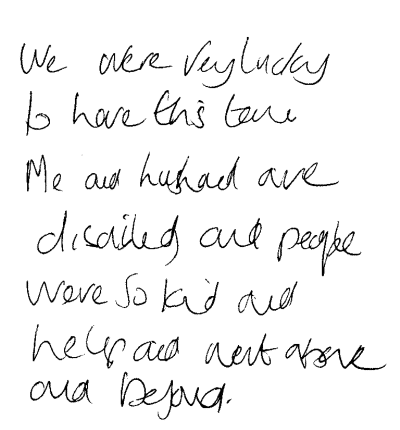 We were very lucky
to have this team
Me and husband are
disabled and people
were so kind and
help and went above
and beyond.